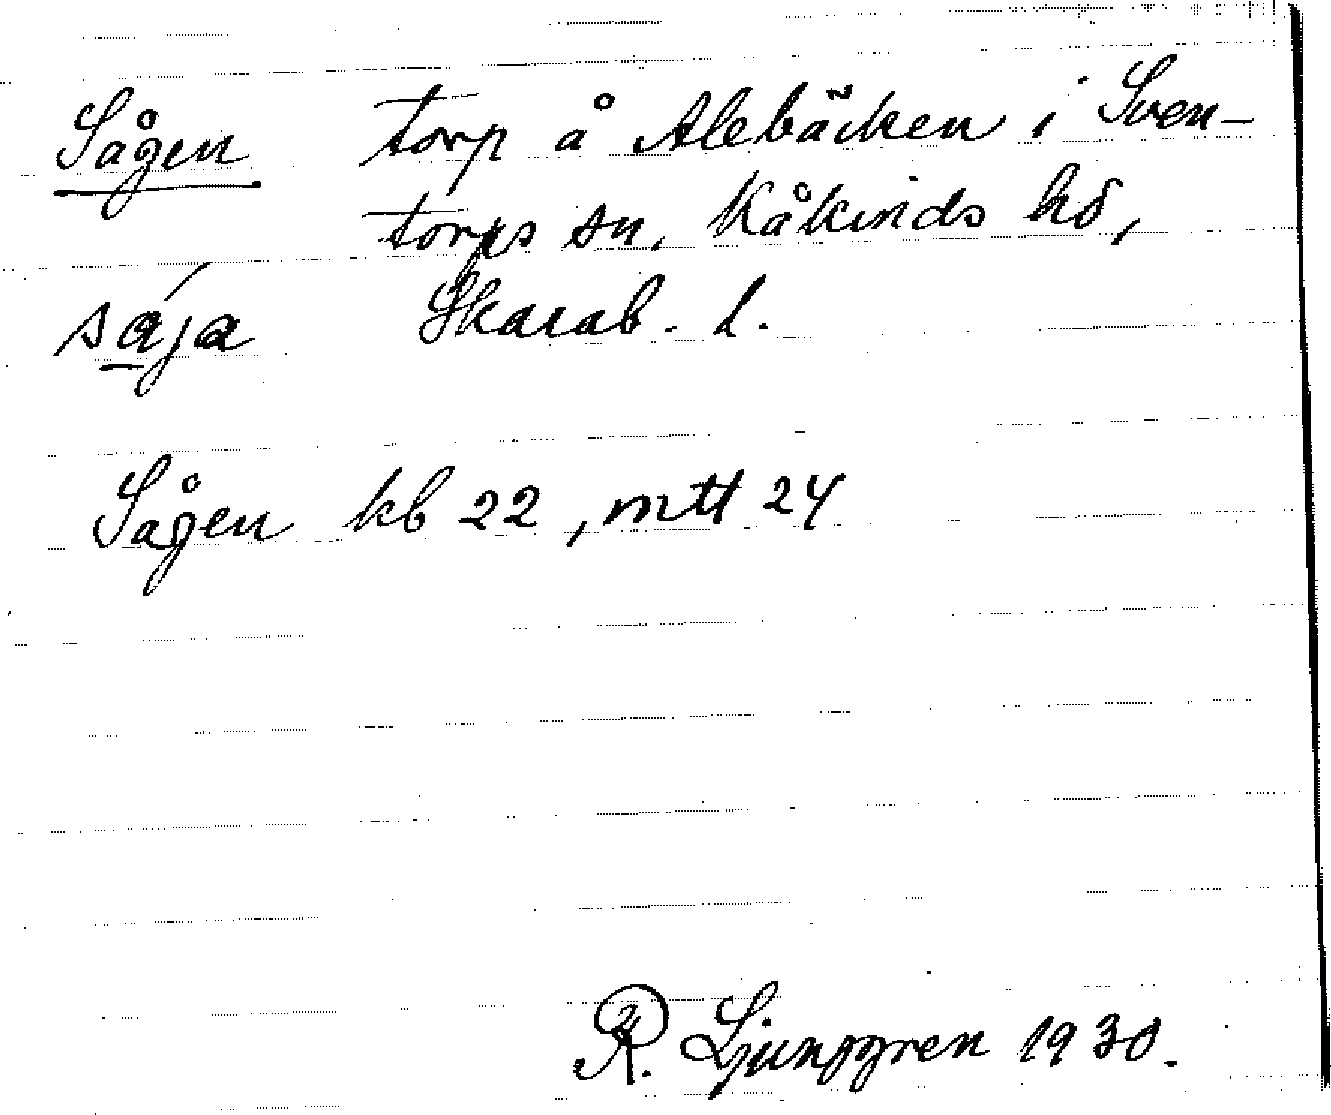 Sågen torp å Alebäcken i Sven-
torps sn, Kåkinds hd,
sája Skarab. l.
Sågen kb 22, mtt 24
R. Ljunggren 1930.